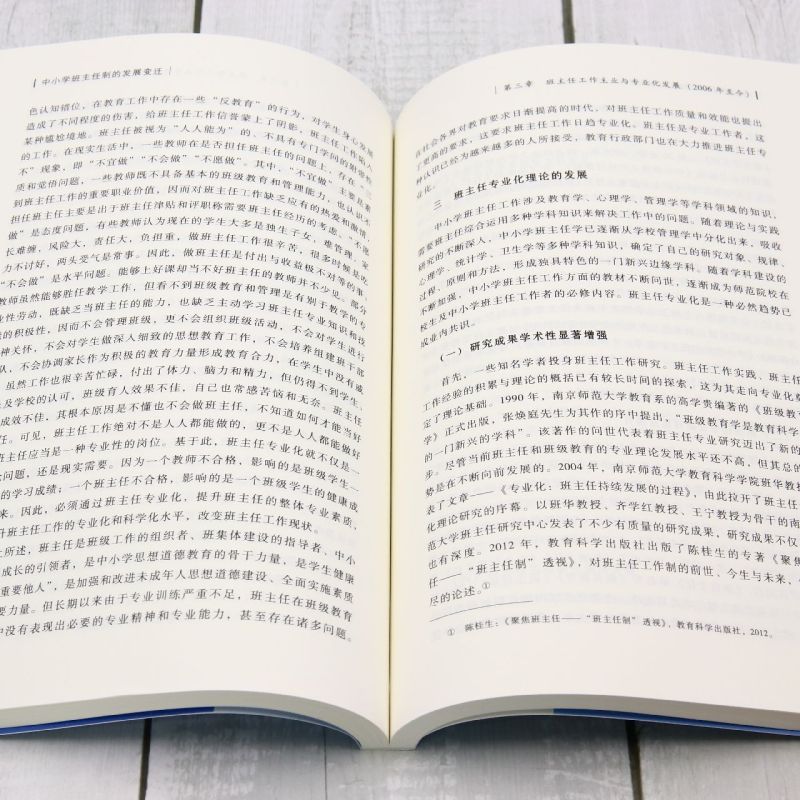 中小学班主任制的发展变迁
色认知错位，在教育工作中存在一些“反教育”的行为，对学生身心发展
造成了不同程度的伤害，给班主任工作信誉蒙上了阴影，班主任工作陷入
某种尴尬境地。班主任被视为“人人能为”的、不具有专门学问的附带性
的工作。在现实生活中，一些教师在是否担任班主任的问题上，存在“三
不”现象，即“不宜做”“不会做”“不愿做”。其中，“不宜做”主要是素
质和觉悟问题，一些教师既不具备基本的班级教育和管理能力，也认识不
到班主任工作的重要职业价值，因而对班主任工作缺乏应有的热爱和激情，
担任班主任主要是出于班主任津贴和评职称需要班主任经历的考虑。“不愿
做”是态度问题，有些教师认为现在的学生大多是独生子女，难管理，家
长难缠，风险大，责任大，负担重，做班主任工作很辛苦，很多时候是吃
力不讨好，两头受气是常事。因此，做班主任是付出与收益极不对等的事。
“不会做”是水平问题。能够上好课却当不好班主任的教师并不少见。部分
教师虽然能够胜任教学工作，但看不到班级教育和管理是有别于教学的专
业性劳动，既缺乏当班主任的能力，也缺乏主动学习班主任专业知识和技
的积极性，因而不会管理班级，更不会组织班级活动，不会对学生进行
神关怀，不会对学生做深入细致的思想教育工作，不会培养组建班干部
，不会协调家长作为积极的教育力量形成教育合力，在学生中没有威
虽然工作也很辛苦忙碌，付出了体力、脑力和精力，但仍得不到学生、
及学校的认可，班级育人效果不佳，自己也常感苦恼和无奈。班主任
成效不佳，其根本原因是不懂也不会做班主任，不知道如何才能当好
任。可见，班主任工作绝对不是人人都能做的，更不是人人都能做好
班主任应当是一种专业性的岗位。基于此，班主任专业化就不仅是一
论问题，还是现实需要。因为一个教师不合格，影响的是班级学生一
的学习成绩；一个班主任不合格，影响的是一个班级学生的健康成
来。因此，必须通过班主任专业化，提升班主任的整体专业素质，
升班主任工作的专业化和科学化水平，改变班主任工作现状。
上所述，班主任是班级工作的组织者、班集体建设的指导者、中小
成长的引领者，是中小学思想道德教育的骨干力量，是学生健康
重要他人”，是加强和改进未成年人思想道德建设、全面实施素质
要力量。但长期以来由于专业训练严重不足，班主任在班级教育
中没有表现出必要的专业精神和专业能力，甚至存在诸多问题。
第三章 班主任工作主业与专业化发展（2006年至今）
在社会各界对教育要求日渐提高的时代，对班主任工作质量和效能也提出
了更高的要求，这要求班主任工作日趋专业化。班主任是专业工作者，这
种认识已经为越来越多的人所接受，教育行政部门也在大力推进班主任专
业化。
三 班主任专业化理论的发展
中小学班主任工作涉及教育学、心理学、管理学等学科领域的知识，
需要班主任综合运用多种学科知识来解决工作中的问题。随着理论与实践
研究的不断深入，中小学班主任学已逐渐从学校管理学中分化出来，吸收
心理学、统计学、卫生学等多种学科知识，确定了自己的研究对象、规律、
过程、原则和方法，形成独具特色的一门新兴边缘学科。随着学科建设的
不断加强，中小学班主任工作方面的教材不断问世，逐渐成为师范院校在
校生及中小学班主任工作者的必修内容。班主任专业化是一种必然趋势已
成业内共识。
（一）研究成果学术性显著增强
首先，一些知名学者投身班主任工作研究。班主任工作实践、班主任
工作经验的积累与理论的概括已有较长时间的探索，这为其走向专业化奠
定了理论基础。1990年，南京师范大学教育系的高学贵编著的《班级教育
学》正式出版，张焕庭先生为其作的序中提出，“班级教育学是教育科学
的一门新兴的学科”。该著作的问世代表着班主任专业研究迈出了新的
步。尽管当前班主任和班级教育的专业理论发展水平还不高，但其总的
势是在不断向前发展的。2004年，南京师范大学教育科学学院班华教
表了文章——《专业化：班主任持续发展的过程》，由此拉开了班主任
化理论研究的序幕。以班华教授、齐学红教授、王宁教授为骨干的南
范大学班主任研究中心发表了不少有质量的研究成果，研究成果不仅
也有深度。2012年，教育科学出版社出版了陈桂生的专著《聚焦
任——“班主任制”透视》，对班主任工作制的前世、今生与未来，
尽的论述。①
① 陈桂生：《聚焦班主任——“班主任制”透视》，教育科学出版社，2012。